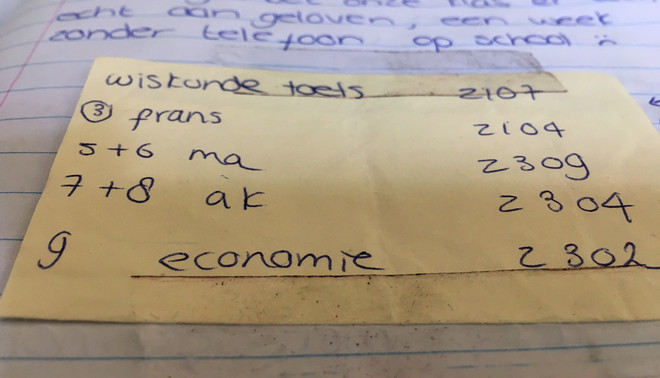 echt aan geloven, een week
zonder telefoon op school :
wiskunde toets 2107
③ frans 2104
5+6 ma 2309
7+8 ak 2304
9 economie 2302